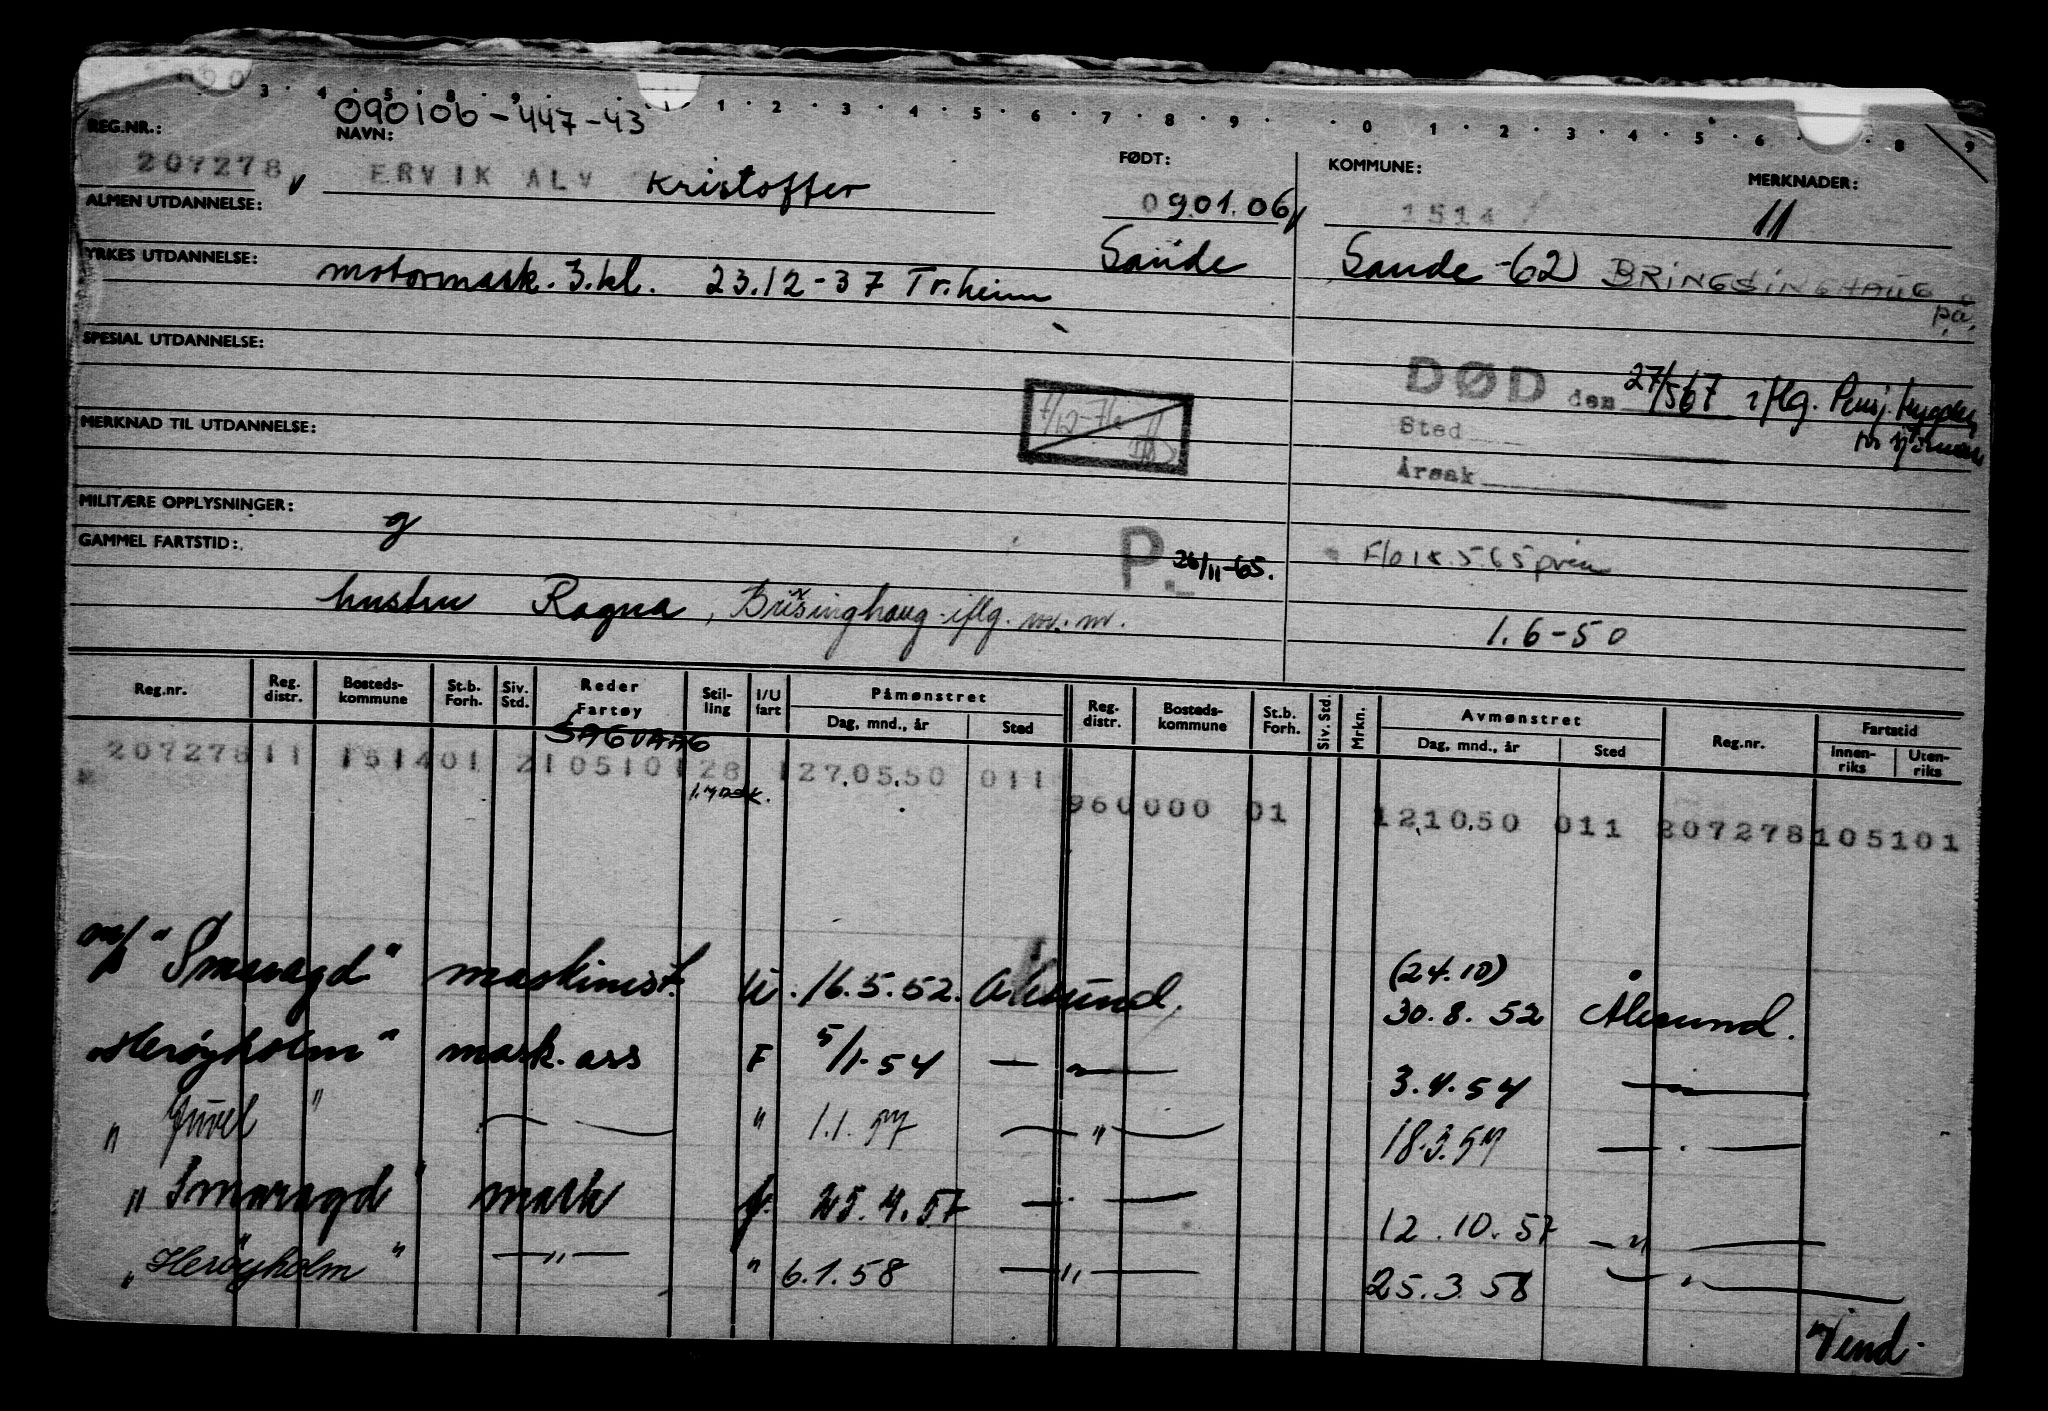 090106-447-43
REG.NR.: NAVN: FØDT: KOMMUNE: MERKNADER:
207278 v ERVIK ALV Kristoffer 09.01.06 1514 11
ALMEN UTDANNELSE:
Sande Sande -62 BRINGSINGHAUG
på.
YRKES UTDANNELSE: motormask. 3.kl. 23.12-37 Tr.heim
SPESIAL UTDANNELSE:
DØD den 27/5 67 iflg. Pensj.trygden
for sjømenn
MERKNAD TIL UTDANNELSE: Sted
Årsak
MILITÆRE OPPLYSNINGER: g
GAMMEL FARTSTID: P. 26/11-65.
hustru Ragna, Brisinghaug iflg. m.m.
1.6-50
Reg.nr. Reg. distr. Bosteds-kommune St.b. Forh. Siv. Std. Reder Fartøy Stil-ling I/U fart Påmønstret Dag, mnd., år Sted Reg. distr. Bosteds-kommune St.b. Forh. Siv. Std. Mrkn. Avmønstret Dag, mnd., år Sted Reg.nr. Fartstid Innen-riks Uten-riks
SAGVAAG
207278 11 1514 01 2 105101 28 1 27.05.50 011
1. mask.
960000 01 12.10.50 011 207278 105101
m/s "Smaragd" maskinist. U. 16.5.52. Ålesund. (24.10) 30.8.52 Ålesund.
"Herøyholm" mask. ass F 5/1-54 — " — 3.4.54 — " —
" Juvel " — — " 1.1.57 — " — 18.3.57 — " —
" Smaragd " mask f. 25.4.57 — " — 12.10.57 — " —
" Herøyholm " — " — " 6.1.58 — " — 25.3.58 — " —
Vend.